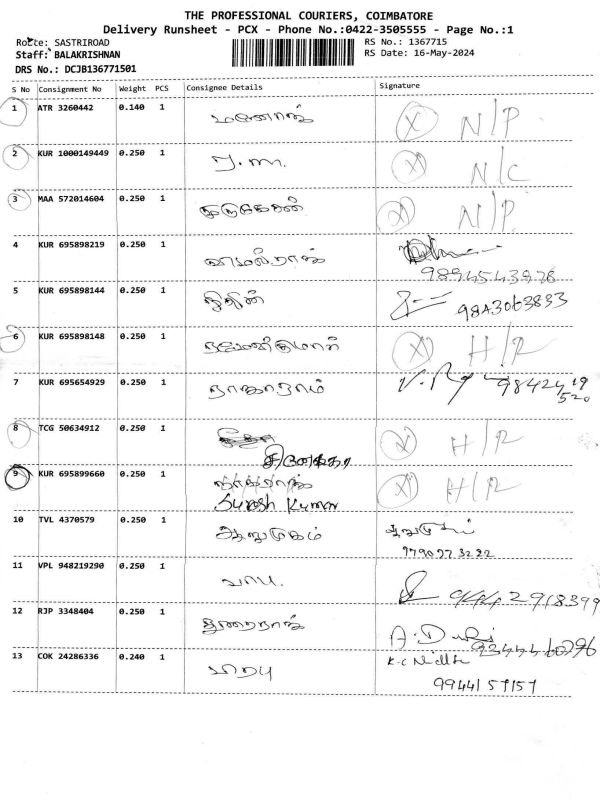 THE PROFESSIONAL COURIERS, COIMBATORE
Delivery Runsheet - PCX - Phone No.:0422-3505555 - Page No.:1
Route: SASTRIROAD
RS No.: 1367715
Staff: BALAKRISHNAN
RS Date: 16-May-2024
DRS No.: DCJB136771501
S No Consignment No Weight PCS Consignee Details Signature
1 ATR 3260442 0.140 1 மனோஜ் X N/P
2 KUR 1000149449 0.250 1 J.m. X N/C
3 MAA 572014604 0.250 1 X N/P
4 KUR 695898219 0.250 1 9894543978
5 KUR 695898144 0.250 1 98A3063833
6 KUR 695898148 0.250 1 X H/R
7 KUR 695654929 0.250 1 நாகராஜ் 98424 19
520
8 TCG 50634912 0.250 1 X H/R
9 KUR 695899660 0.250 1 X H/R
Suresh Kumar
10 TVL 4370579 0.250 1 ஆறுமுகம்
11 VPL 948219290 0.250 1 பாபு. 9442918399
12 RJP 3348404 0.250 1 துரைராஜ் A.Durai
K.C Nidhi
13 COK 24286336 0.240 1 9944157157